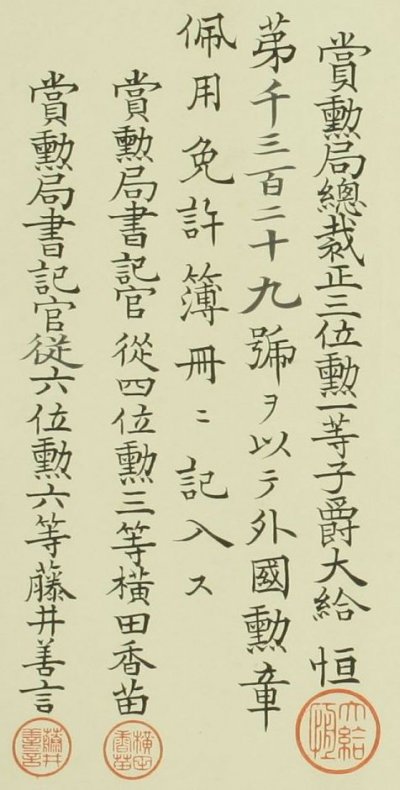 賞勲局總裁正三位勲一等子爵大給恒
第千三百二十九號ヲ以テ外國勲章
佩用免許簿冊ニ記入ス
賞勲局書記官從四位勲三等横田香苗
賞勲局書記官從六位勲六等藤井善言
大給恒
横田香苗
藤井善言